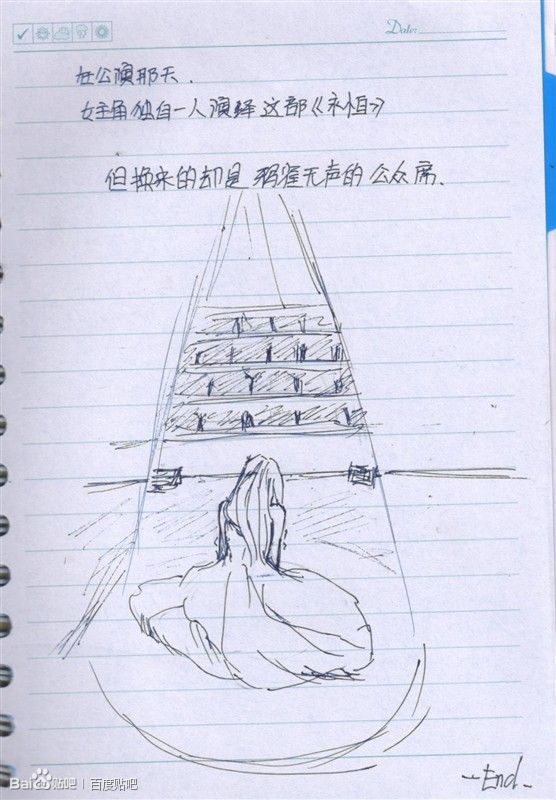 Date:
在公演那天.
女主角独自一人演绎这部《永恒》
但换来的却是鸦雀无声的公众席.
-End-
Baidu贴吧 | 百度贴吧